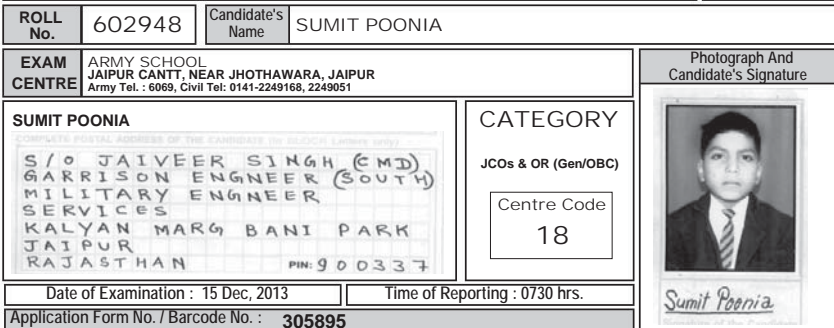 ROLL No. 602948 Candidate's Name SUMIT POONIA
EXAM CENTRE
ARMY SCHOOL
JAIPUR CANTT, NEAR JHOTHAWARA, JAIPUR
Army Tel. : 6069, Civil Tel: 0141-2249168, 2249051
Photograph And
Candidate's Signature
SUMIT POONIA
COMPLETE POSTAL ADDRESS OF THE CANDIDATE (In BLOCK Letters only)
S/O JAIVEER SINGH (CMD)
GARRISON ENGNEER (SOUTH)
MILITARY ENGNEER
SERVICES
KALYAN MARG BANI PARK
JAIPUR
RAJASTHAN PIN: 900337
CATEGORY
JCOs & OR (Gen/OBC)
Centre Code
18
Sumit Poonia
Signature of the Candidate
Date of Examination : 15 Dec, 2013 Time of Reporting : 0730 hrs.
Application Form No. / Barcode No. : 305895